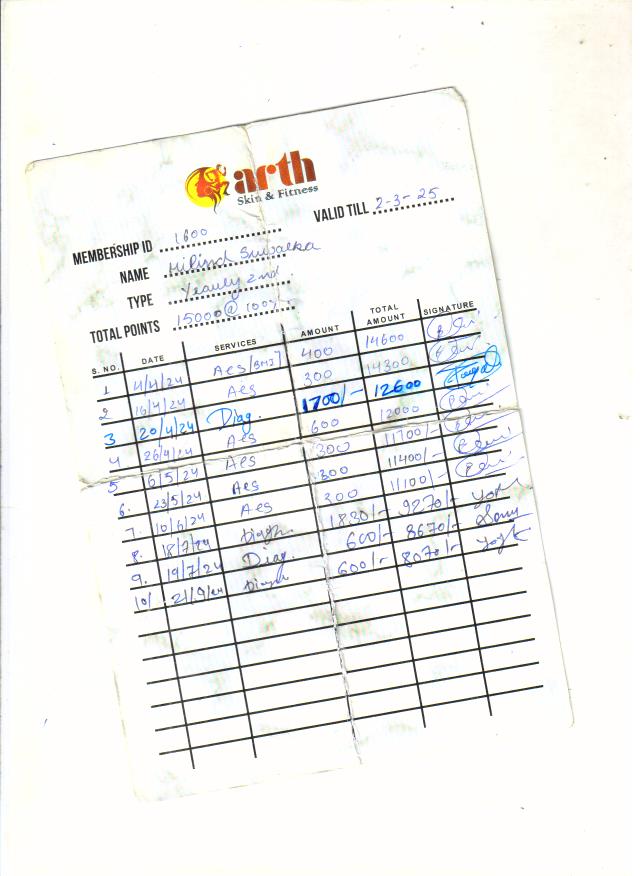 arth
Skin & Fitness
VALID TILL 2-3-25
MEMBERSHIP ID 1600
NAME Milind Suwalka
TYPE Yearly 2nd
TOTAL POINTS 15000@100%
S. NO. DATE SERVICES AMOUNT TOTAL AMOUNT SIGNATURE
1 4/4/24 Aes 400 14600
2 16/4/24 Aes 300 14300
3 20/4/24 Diag. 1700/- 12600
4 26/4/24 Aes 600 12000
5 6/5/24 Aes 300 11700/-
6. 23/5/24 Aes 300 11400/-
7. 10/6/24 Aes 300 11100/-
8. 18/7/24 1830/- 9270/-
9. 19/7/24 Diag. 600/- 8670/-
10/ 21/9/24 600/- 8070/-